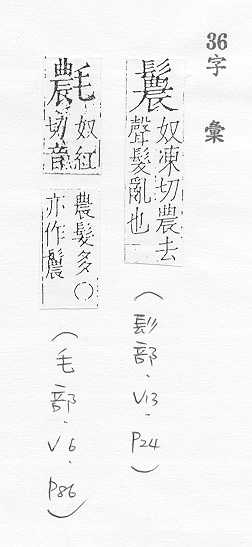 36
字彙
鬞
奴凍切農去
聲髮亂也
(髟部.V13.P24)
𣰊
奴紅
切音
農髮多○
亦作鬞
(毛部.V6.P86)